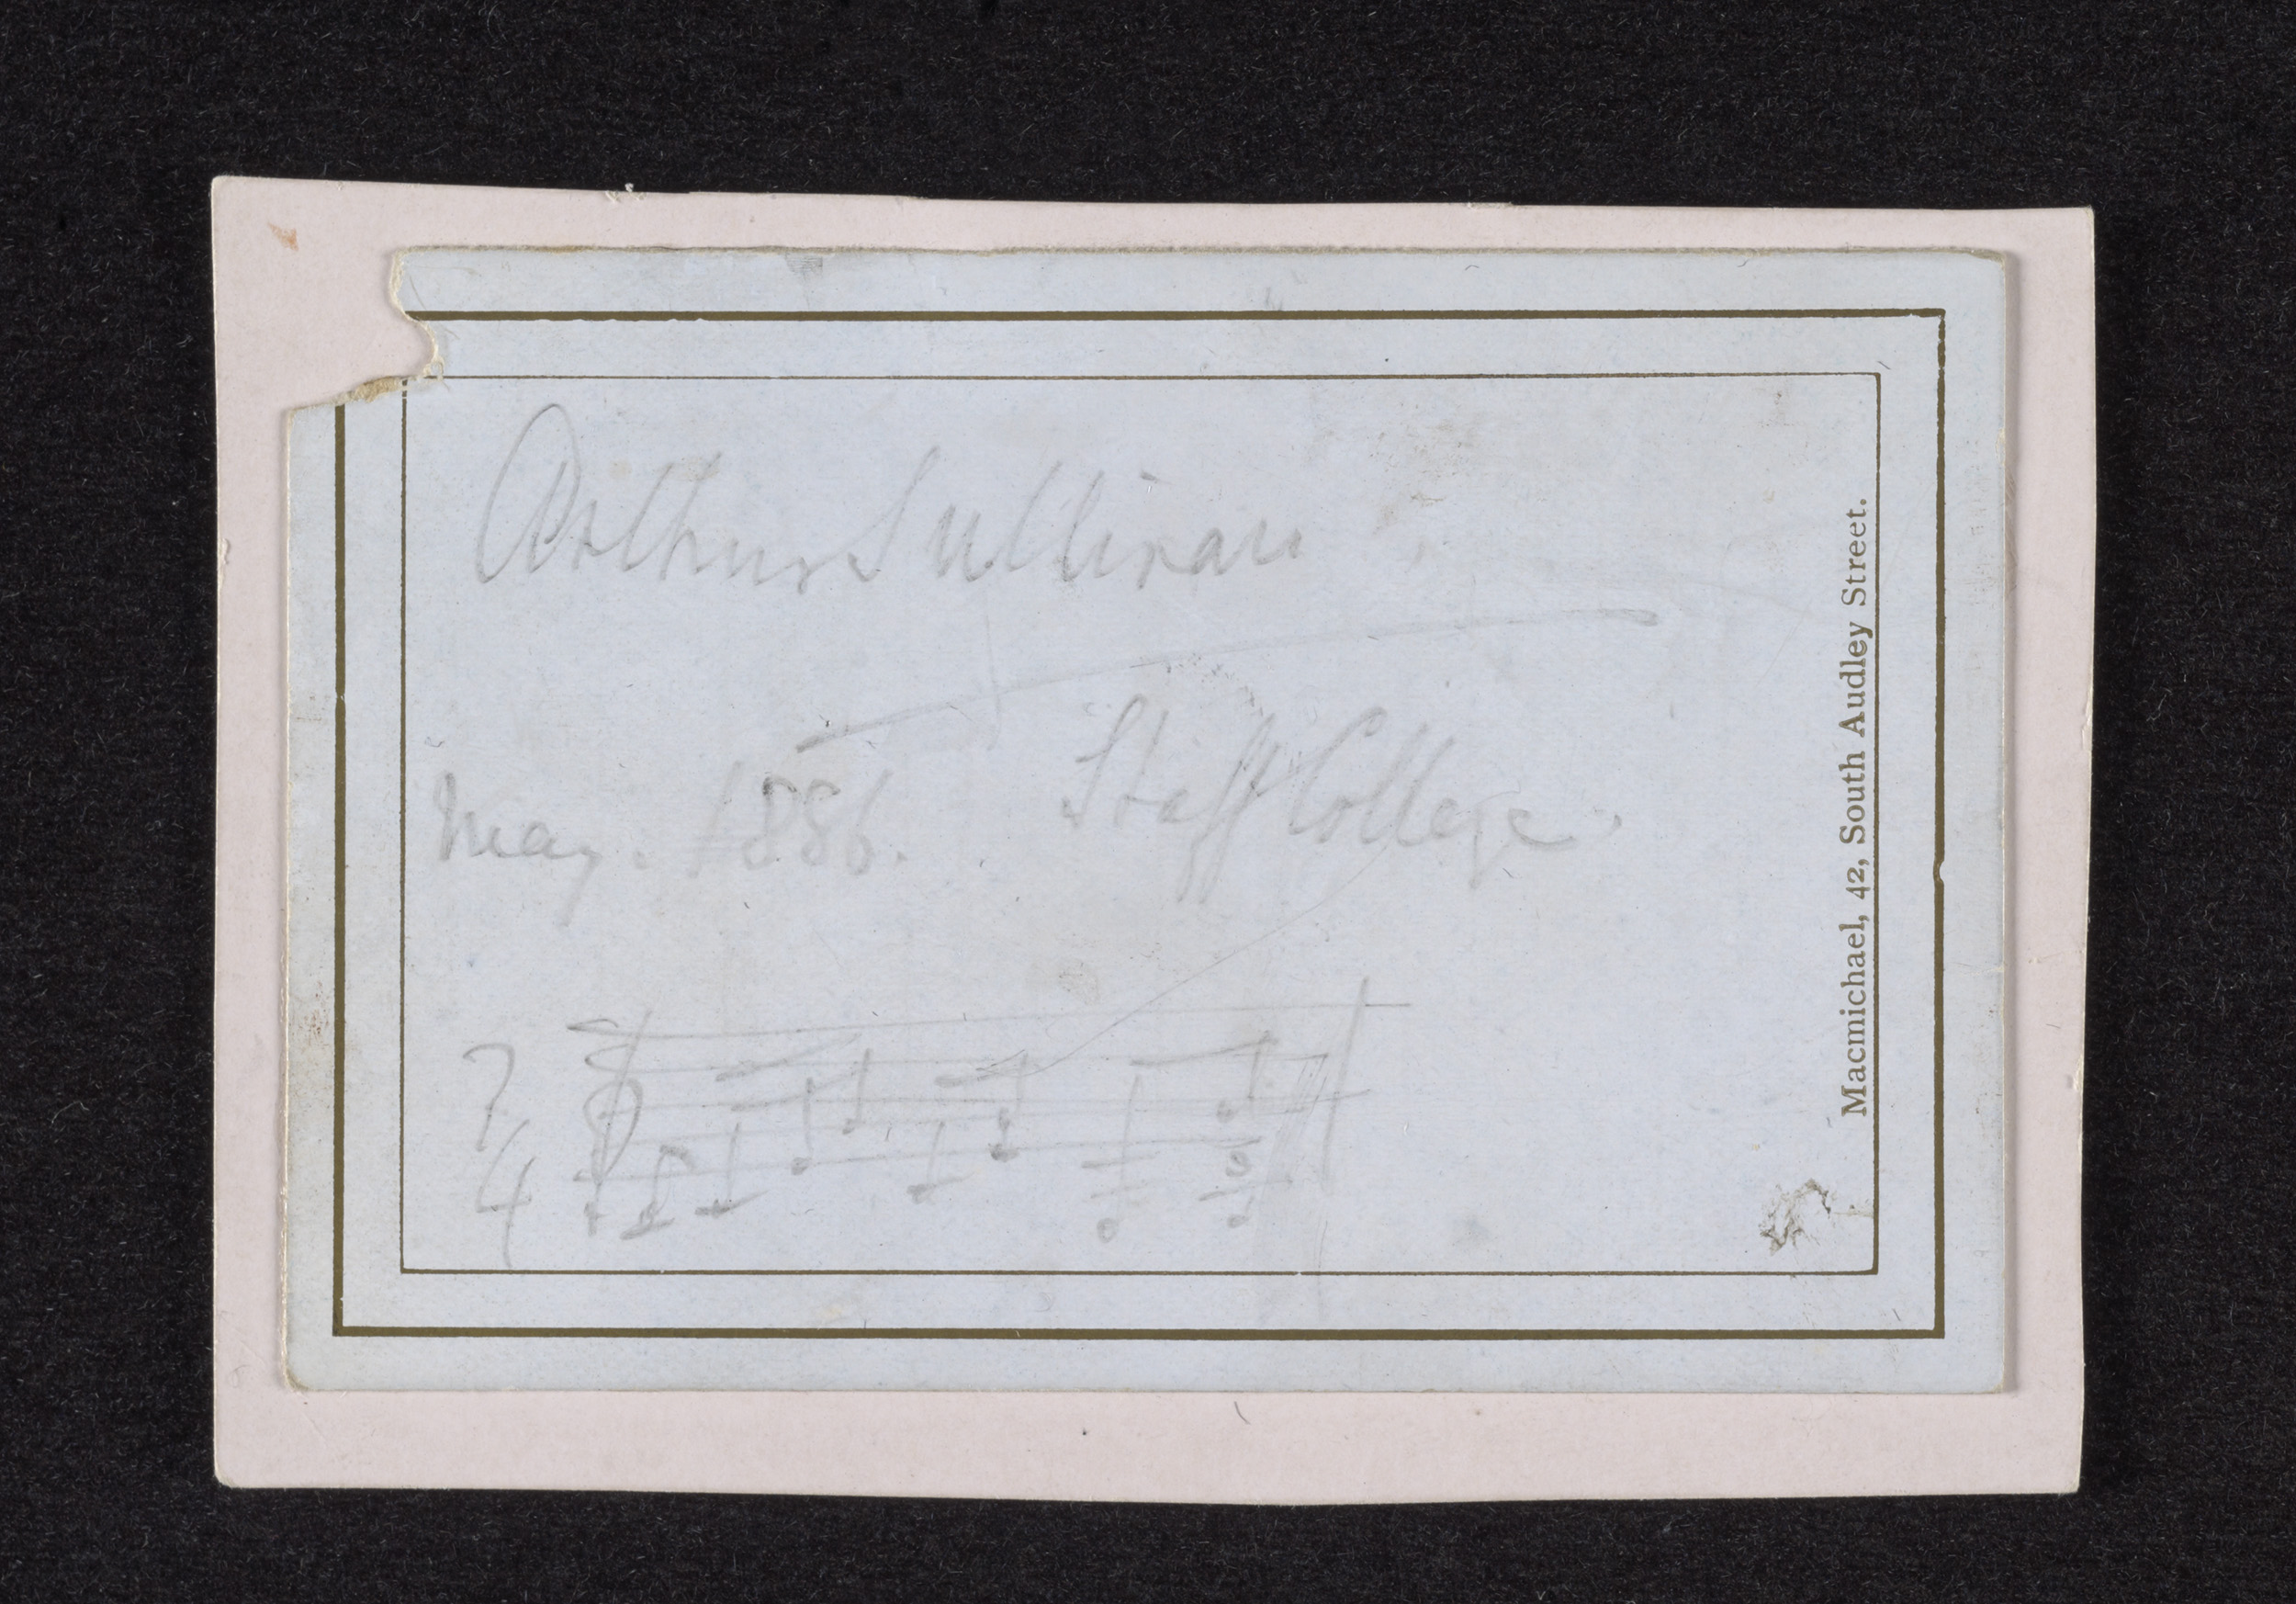 Arthur Sullivan
May. 1886. Staff College.
7
4
Macmichael, 42, South Audley Street.